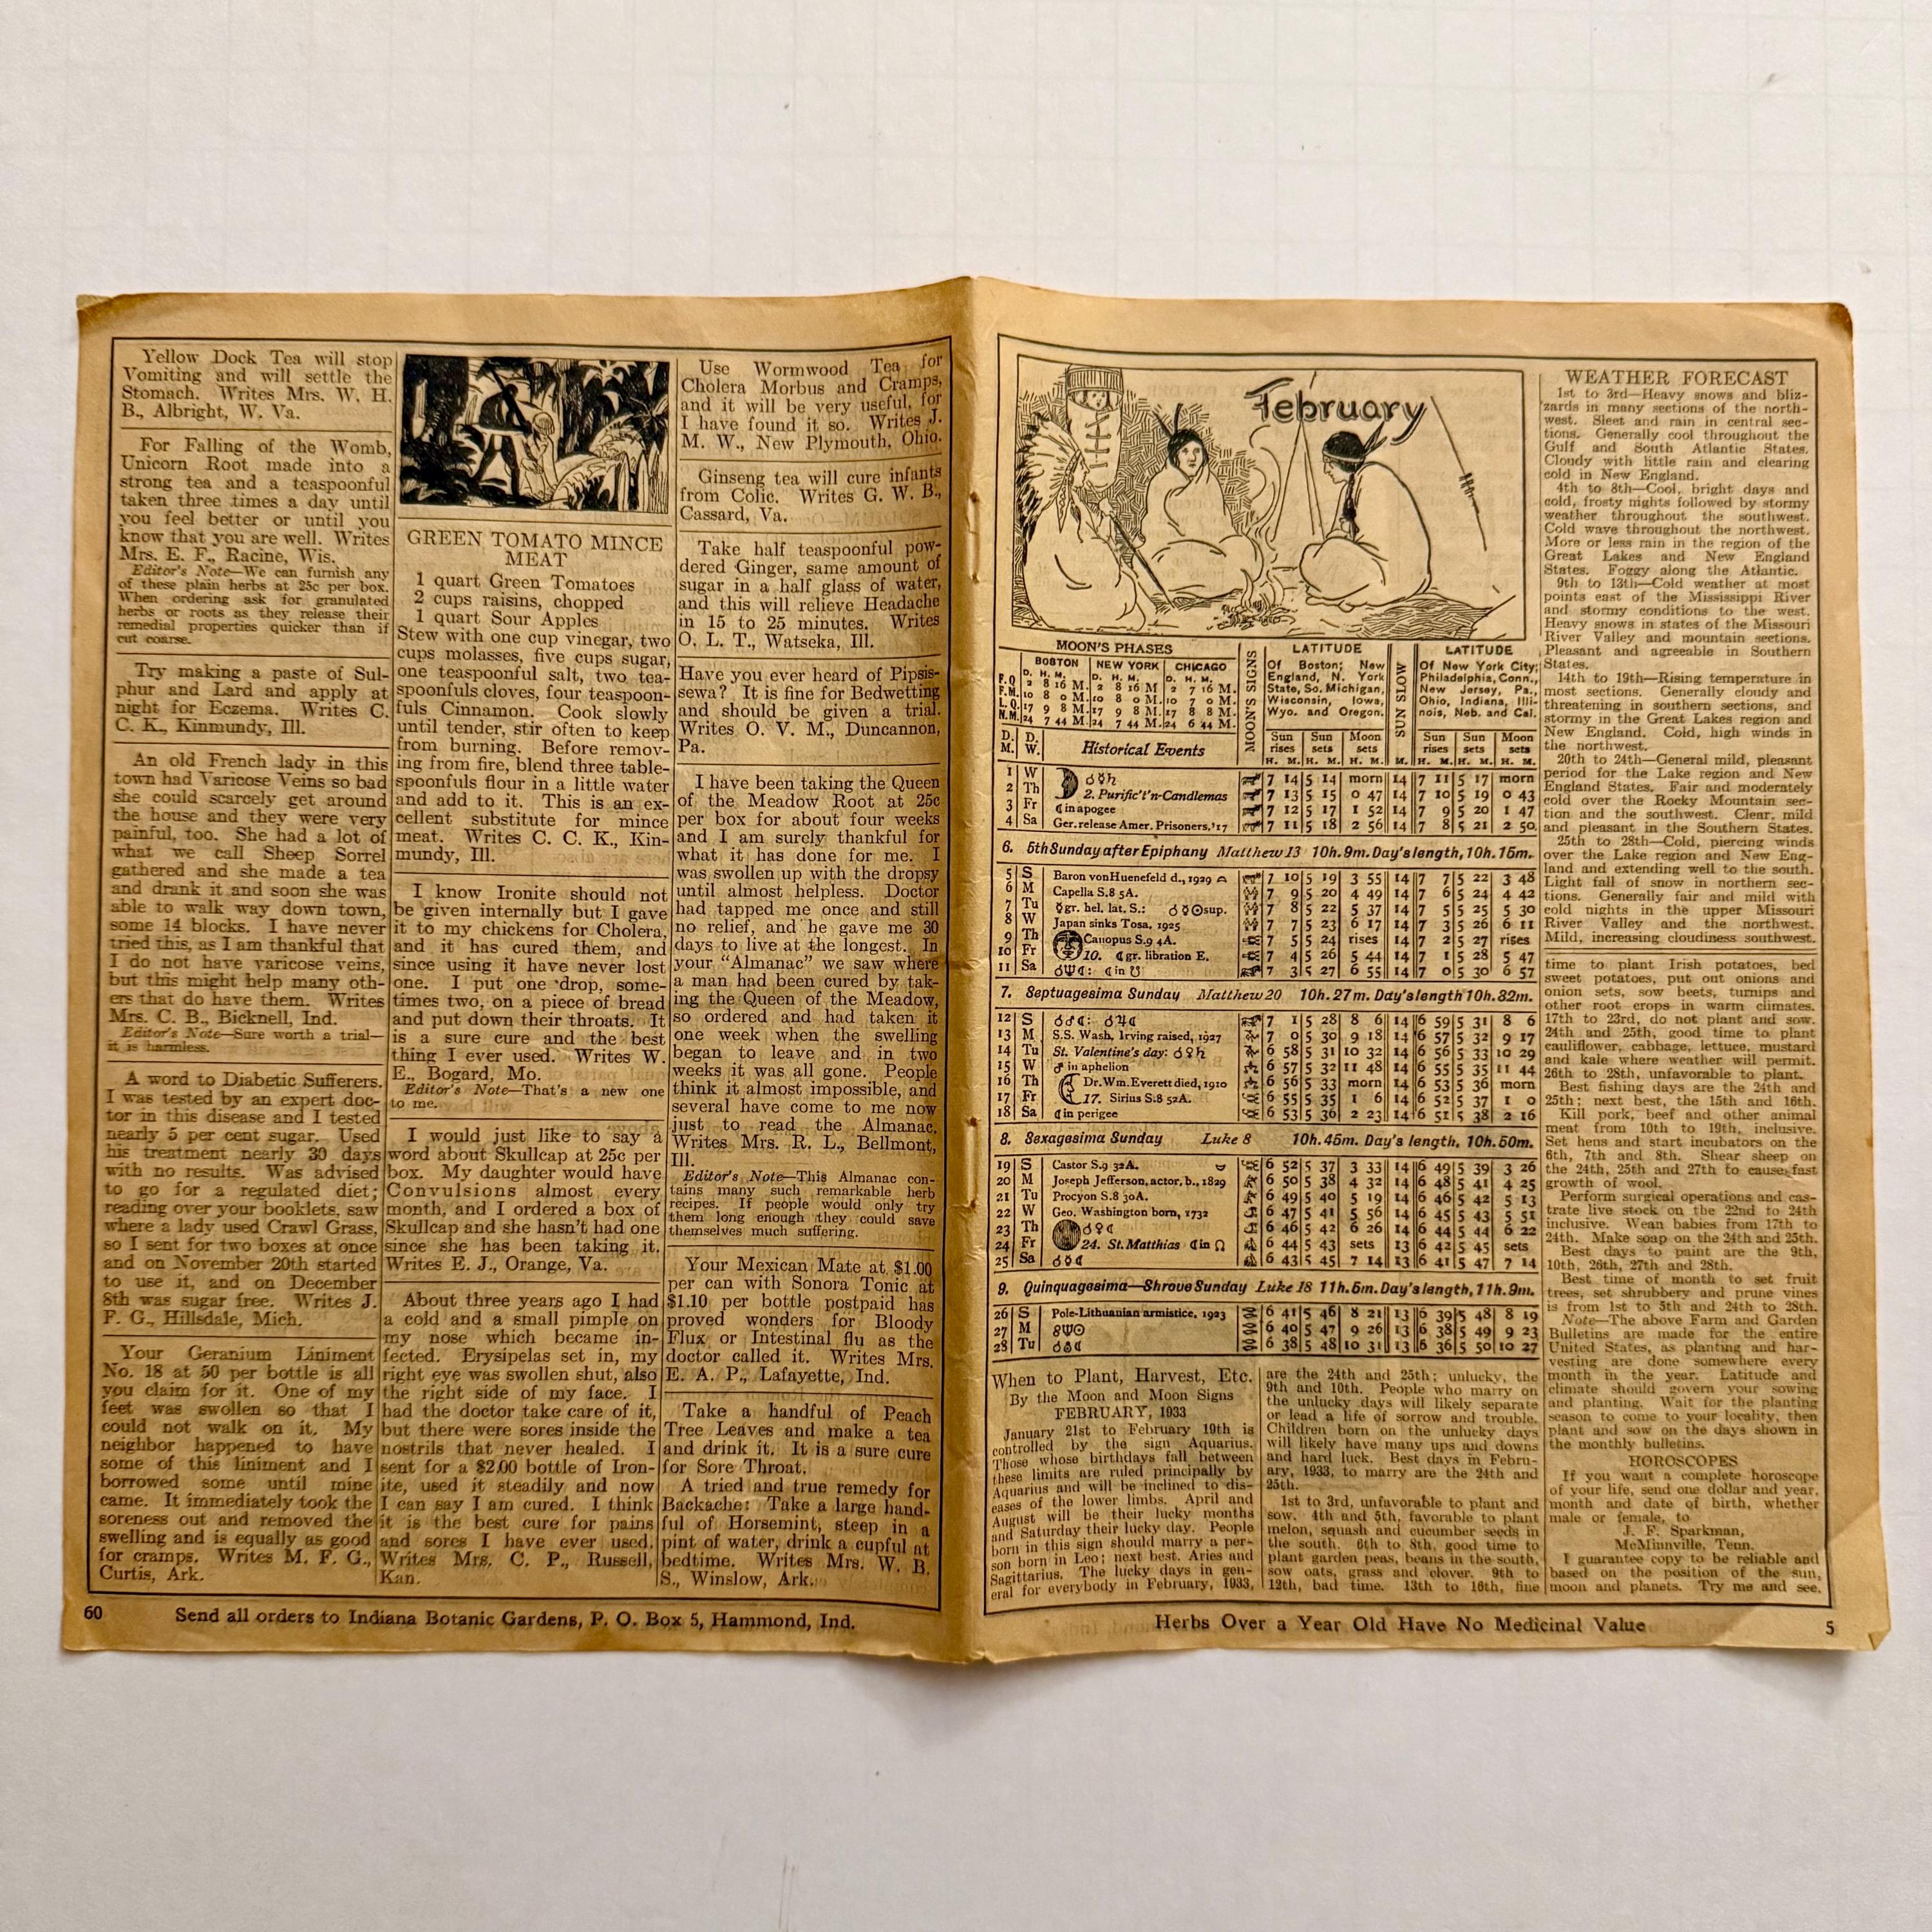 Yellow Dock Tea will stop
Vomiting and will settle the
Stomach. Writes Mrs. W. H.
B., Albright, W. Va.
For Falling of the Womb,
Unicorn Root made into a
strong tea and a teaspoonful
taken three times a day until
you feel better or until you
know that you are well. Writes
Mrs. E. F., Racine, Wis.
Editor's Note—We can furnish any
of these plain herbs at 25c per box.
When ordering ask for granulated
herbs or roots as they release their
remedial properties quicker than if
cut coarse.
Try making a paste of Sul-
phur and Lard and apply at
night for Eczema. Writes C.
C. K., Kinmundy, Ill.
An old French lady in this
town had Varicose Veins so bad
she could scarcely get around
the house and they were very
painful, too. She had a lot of
what we call Sheep Sorrel
gathered and she made a tea
and drank it and soon she was
able to walk way down town,
some 14 blocks. I have never
tried this, as I am thankful that
I do not have varicose veins,
but this might help many oth-
ers that do have them. Writes
Mrs. C. B., Bicknell, Ind.
Editor's Note—Sure worth a trial—
it is harmless.
A word to Diabetic Sufferers.
I was tested by an expert doc-
tor in this disease and I tested
nearly 5 per cent sugar. Used
his treatment nearly 30 days
with no results. Was advised
to go for a regulated diet;
reading over your booklets, saw
where a lady used Crawl Grass,
so I sent for two boxes at once
and on November 20th started
to use it, and on December
8th was sugar free. Writes J.
F. G., Hillsdale, Mich.
Your Geranium Liniment
No. 18 at 50 per bottle is all
you claim for it. One of my
feet was swollen so that I
could not walk on it. My
neighbor happened to have
some of this liniment and I
borrowed some until mine
came. It immediately took the
soreness out and removed the
swelling and is equally as good
for cramps. Writes M. F. G.,
Curtis, Ark.
GREEN TOMATO MINCE
MEAT
1 quart Green Tomatoes
2 cups raisins, chopped
1 quart Sour Apples
Stew with one cup vinegar, two
cups molasses, five cups sugar,
one teaspoonful salt, two tea-
spoonfuls cloves, four teaspoon-
fuls Cinnamon. Cook slowly
until tender, stir often to keep
from burning. Before remov-
ing from fire, blend three table-
spoonfuls flour in a little water
and add to it. This is an ex-
cellent substitute for mince
meat. Writes C. C. K., Kin-
mundy, Ill.
I know Ironite should not
be given internally but I gave
it to my chickens for Cholera,
and it has cured them, and
since using it have never lost
one. I put one drop, some-
times two, on a piece of bread
and put down their throats. It
is a sure cure and the best
thing I ever used. Writes W.
E., Bogard, Mo.
Editor's Note—That's a new one
to me.
I would just like to say a
word about Skullcap at 25c per
box. My daughter would have
Convulsions almost every
month, and I ordered a box of
Skullcap and she hasn't had one
since she has been taking it.
Writes E. J., Orange, Va.
About three years ago I had
a cold and a small pimple on
my nose which became in-
fected. Erysipelas set in, my
right eye was swollen shut, also
the right side of my face. I
had the doctor take care of it,
but there were sores inside the
nostrils that never healed. I
sent for a $2.00 bottle of Iron-
ite, used it steadily and now
I can say I am cured. I think
it is the best cure for pains
and sores I have ever used.
Writes Mrs. C. P., Russell,
Kan.
Use Wormwood Tea for
Cholera Morbus and Cramps,
and it will be very useful, for
I have found it so. Writes J.
M. W., New Plymouth, Ohio.
Ginseng tea will cure infants
from Colic. Writes G. W. B.,
Cassard, Va.
Take half teaspoonful pow-
dered Ginger, same amount of
sugar in a half glass of water,
and this will relieve Headache
in 15 to 25 minutes. Writes
O. L. T., Watseka, Ill.
Have you ever heard of Pipsis-
sewa? It is fine for Bedwetting
and should be given a trial.
Writes O. V. M., Duncannon,
Pa.
I have been taking the Queen
of the Meadow Root at 25c
per box for about four weeks
and I am surely thankful for
what it has done for me. I
was swollen up with the dropsy
until almost helpless. Doctor
had tapped me once and still
no relief, and he gave me 30
days to live at the longest. In
your "Almanac" we saw where
a man had been cured by tak-
ing the Queen of the Meadow,
so ordered and had taken it
one week when the swelling
began to leave and in two
weeks it was all gone. People
think it almost impossible, and
several have come to me now
just to read the Almanac.
Writes Mrs. R. L., Bellmont,
Ill.
Editor's Note—This Almanac con-
tains many such remarkable herb
recipes. If people would only try
them long enough they could save
themselves much suffering.
Your Mexican Mate at $1.00
per can with Sonora Tonic at
$1.10 per bottle postpaid has
proved wonders for Bloody
Flux or Intestinal flu as the
doctor called it. Writes Mrs.
E. A. P., Lafayette, Ind.
Take a handful of Peach
Tree Leaves and make a tea
and drink it. It is a sure cure
for Sore Throat.
A tried and true remedy for
Backache: Take a large hand-
ful of Horsemint, steep in a
pint of water, drink a cupful at
bedtime. Writes Mrs. W. B.
S., Winslow, Ark.
60 Send all orders to Indiana Botanic Gardens, P. O. Box 5, Hammond, Ind.
February
MOON'S PHASES
BOSTON NEW YORK CHICAGO
D. H. M. D. H. M. D. H. M.
F.Q 2 8 16 M. 2 8 16 M 2 7 16 M.
F.M. 10 8 0 M. 10 8 0 M. 10 7 0 M.
L.Q. 17 9 8 M. 17 9 8 M. 17 8 8 M.
N.M. 24 7 44 M. 24 7 44 M. 24 6 44 M.
MOON'S SIGNS
LATITUDE
Of Boston; New
England, N. York
State, So. Michigan,
Wisconsin, Iowa,
Wyo. and Oregon.
SUN SLOW
LATITUDE
Of New York City;
New Jersey, Pa.,
Philadelphia, Conn.,
Ohio, Indiana, Illi-
nois, Neb. and Cal.
D. M. D. W. Historical Events Sun rises Sun sets Moon sets Sun rises Sun sets Moon sets
H. M. H. M. H. M. M. H. M. H. M. H. M.
1 W ☌☿♄ 7 14 5 14 morn 14 7 11 5 17 morn
2 Th 2. Purific't'n-Candlemas 7 13 5 15 0 47 14 7 10 5 19 0 43
3 Fr ☾ in apogee 7 12 5 17 1 52 14 7 9 5 20 1 47
4 Sa Ger. release Amer. Prisoners,'17 7 11 5 18 2 56 14 7 8 5 21 2 50
6. 5th Sunday after Epiphany Matthew 13 10h. 9m. Day's length, 10h. 15m.
5 S Baron von Huenefeld d., 1929 7 10 5 19 3 55 14 7 7 5 22 3 48
6 M Capella S. 8 5A. 7 9 5 20 4 49 14 7 6 5 24 4 42
7 Tu ☿ gr. hel. lat. S.: ☌☿☉ sup. 7 8 5 22 5 37 14 7 5 5 25 5 30
8 W Japan sinks Tosa, 1925 7 7 5 23 6 17 14 7 3 5 26 6 11
9 Th Canopus S. 9 4A. 7 5 5 24 rises 14 7 2 5 27 rises
10 Fr 10. ☾ gr. libration E. 7 4 5 26 5 44 14 7 1 5 28 5 47
11 Sa ☌♆☾: ☾ in ☋ 7 3 5 27 6 55 14 7 0 5 30 6 57
7. Septuagesima Sunday Matthew 20 10h. 27m. Day's length 10h. 32m.
12 S ☌♂☾: ☌♃☾ 7 1 5 28 8 6 14 6 59 5 31 8 6
13 M S.S. Wash. Irving raised, 1927 7 0 5 30 9 18 14 6 57 5 32 9 17
14 Tu St. Valentine's day: ☌♀♄ 6 58 5 31 10 32 14 6 56 5 33 10 29
15 W ♂ in aphelion 6 57 5 32 11 48 14 6 55 5 35 11 44
16 Th Dr. Wm. Everett died, 1910 6 56 5 33 morn 14 6 53 5 36 morn
17 Fr 17. Sirius S. 8 52A. 6 55 5 35 1 6 14 6 52 5 37 1 0
18 Sa ☾ in perigee 6 53 5 36 2 23 14 6 51 5 38 2 16
8. Sexagesima Sunday Luke 8 10h. 45m. Day's length, 10h. 50m.
19 S Castor S. 9 32A. 6 52 5 37 3 33 14 6 49 5 39 3 26
20 M Joseph Jefferson, actor, b., 1829 6 50 5 38 4 32 14 6 48 5 41 4 25
21 Tu Procyon S. 8 30A. 6 49 5 40 5 19 14 6 46 5 42 5 13
22 W Geo. Washington born, 1732 6 47 5 41 5 56 14 6 45 5 43 5 51
23 Th ☌♀☾ 6 46 5 42 6 26 14 6 44 5 44 6 22
24 Fr 24. St. Matthias ☾ in ☊ 6 44 5 43 sets 13 6 42 5 45 sets
25 Sa 6 43 5 45 7 14 13 6 41 5 47 7 14
9. Quinquagesima—Shrove Sunday Luke 18 11h. 5m. Day's length, 11h. 9m.
26 S Pole-Lithuanian armistice, 1923 6 41 5 46 8 21 13 6 39 5 48 8 19
27 M ☍♆☉ 6 40 5 47 9 26 13 6 38 5 49 9 23
28 Tu 6 38 5 48 10 31 13 6 36 5 50 10 27
When to Plant, Harvest, Etc.
By the Moon and Moon Signs
FEBRUARY, 1933
January 21st to February 19th is
controlled by the sign Aquarius.
Those whose birthdays fall between
these limits are ruled principally by
Aquarius and will be inclined to dis-
eases of the lower limbs. April and
August will be their lucky months
and Saturday their lucky day. People
born in this sign should marry a per-
son born in Leo; next best. Aries and
Sagittarius. The lucky days in gen-
eral for everybody in February, 1933,
are the 24th and 25th; unlucky, the
9th and 10th. People who marry on
the unlucky days will likely separate
or lead a life of sorrow and trouble.
Children born on the unlucky days
will likely have many ups and downs
and hard luck. Best days in Febru-
ary, 1933, to marry are the 24th and
25th.
1st to 3rd, unfavorable to plant and
sow. 4th and 5th, favorable to plant
melon, squash and cucumber seeds in
the south. 6th to 8th, good time to
plant garden peas, beans in the south,
sow oats, grass and clover. 9th to
12th, bad time. 13th to 16th, fine
WEATHER FORECAST
1st to 3rd—Heavy snows and bliz-
zards in many sections of the north-
west. Sleet and rain in central sec-
tions. Generally cool throughout the
Gulf and South Atlantic States.
Cloudy with little rain and clearing
cold in New England.
4th to 8th—Cool, bright days and
cold, frosty nights followed by stormy
weather throughout the southwest.
Cold wave throughout the northwest.
More or less rain in the region of the
Great Lakes and New England
States. Foggy along the Atlantic.
9th to 13th—Cold weather at most
points east of the Mississippi River
and stormy conditions to the west.
Heavy snows in states of the Missouri
River Valley and mountain sections.
Pleasant and agreeable in Southern
States.
14th to 19th—Rising temperature in
most sections. Generally cloudy and
threatening in southern sections, and
stormy in the Great Lakes region and
New England. Cold, high winds in
the northwest.
20th to 24th—General mild, pleasant
period for the Lake region and New
England States. Fair and moderately
cold over the Rocky Mountain sec-
tion and the southwest. Clear, mild
and pleasant in the Southern States.
25th to 28th—Cold, piercing winds
over the Lake region and New Eng-
land and extending well to the south.
Light fall of snow in northern sec-
tions. Generally fair and mild with
cold nights in the upper Missouri
River Valley and the northwest.
Mild, increasing cloudiness southwest.
time to plant Irish potatoes, bed
sweet potatoes, put out onions and
onion sets, sow beets, turnips and
other root crops in warm climates.
17th to 23rd, do not plant and sow.
24th and 25th, good time to plant
cauliflower, cabbage, lettuce, mustard
and kale where weather will permit.
26th to 28th, unfavorable to plant.
Best fishing days are the 24th and
25th; next best, the 15th and 16th.
Kill pork, beef and other animal
meat from 10th to 19th, inclusive.
Set hens and start incubators on the
6th, 7th and 8th. Shear sheep on
the 24th, 25th and 27th to cause fast
growth of wool.
Perform surgical operations and cas-
trate live stock on the 22nd to 24th
inclusive. Wean babies from 17th to
24th. Make soap on the 24th and 25th.
Best days to paint are the 9th,
10th, 26th, 27th and 28th.
Best time of month to set fruit
trees, set shrubbery and prune vines
is from 1st to 5th and 24th to 28th.
Note—The above Farm and Garden
Bulletins are made for the entire
United States, as planting and har-
vesting are done somewhere every
month in the year. Latitude and
climate should govern your sowing
and planting. Wait for the planting
season to come to your locality, then
plant and sow on the days shown in
the monthly bulletins.
HOROSCOPES
If you want a complete horoscope
of your life, send one dollar and year,
month and date of birth, whether
male or female, to
J. F. Sparkman,
McMinnville, Tenn.
I guarantee copy to be reliable and
based on the position of the sun,
moon and planets. Try me and see.
Herbs Over a Year Old Have No Medicinal Value 5